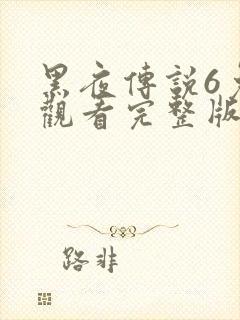 黑夜傳說6
觀看完整版
路非